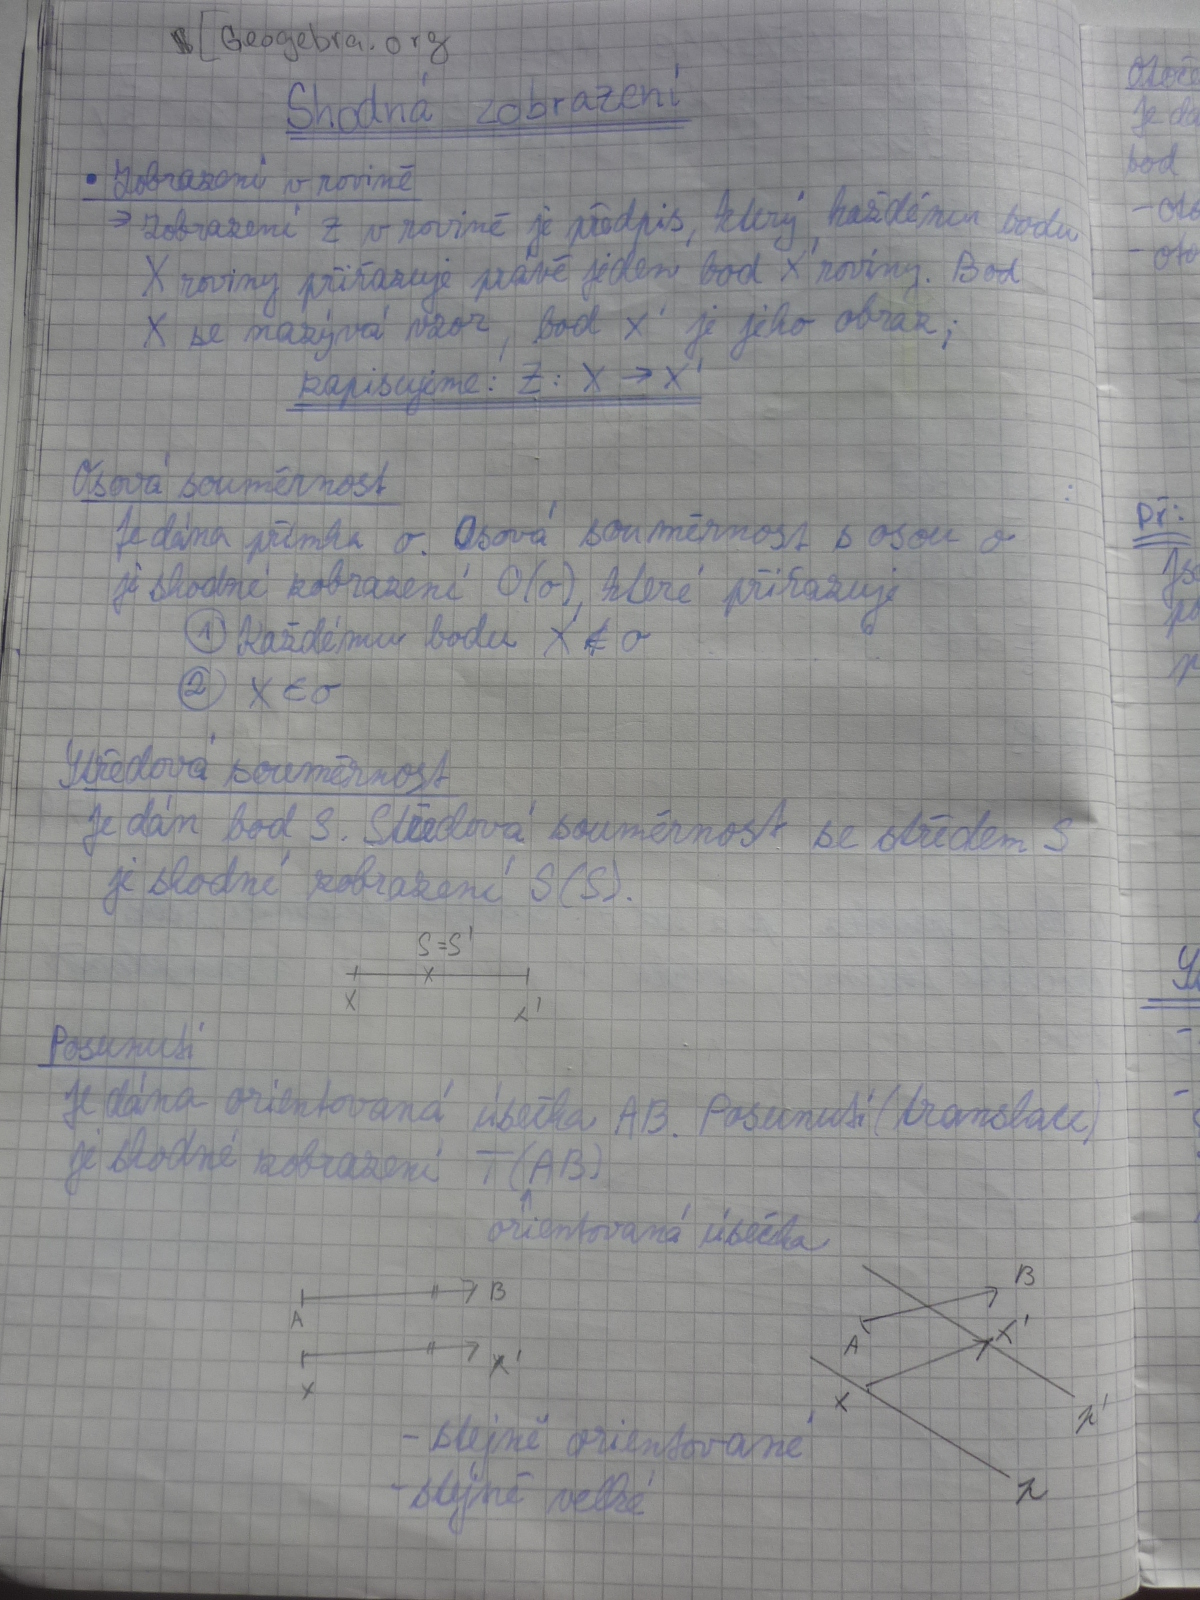 [Geogebra.org
Shodná zobrazení
• Zobrazení v rovině
→ Zobrazení Z v rovině je předpis, který každému bodu
X roviny přiřazuje právě jeden bod X' roviny. Bod
X se nazývá vzor, bod X' je jeho obraz;
zapisujeme: Z: X → X'
Osová souměrnost
Je dána přímka o. Osová souměrnost s osou o
je shodné zobrazení O(o), které přiřazuje
① každému bodu X ∉ o
② X ∈ o
Středová souměrnost
Je dán bod S. Středová souměrnost se středem S
je shodné zobrazení S(S).
S=S'
X
X'
Posunutí
Je dána orientovaná úsečka AB. Posunutí (translace)
je shodné zobrazení T(AB)
↑
orientovaná úsečka
A B
X X'
B
A X'
X
p'
p
- stejně orientované
- stejně velké
Je dá
bod
př: